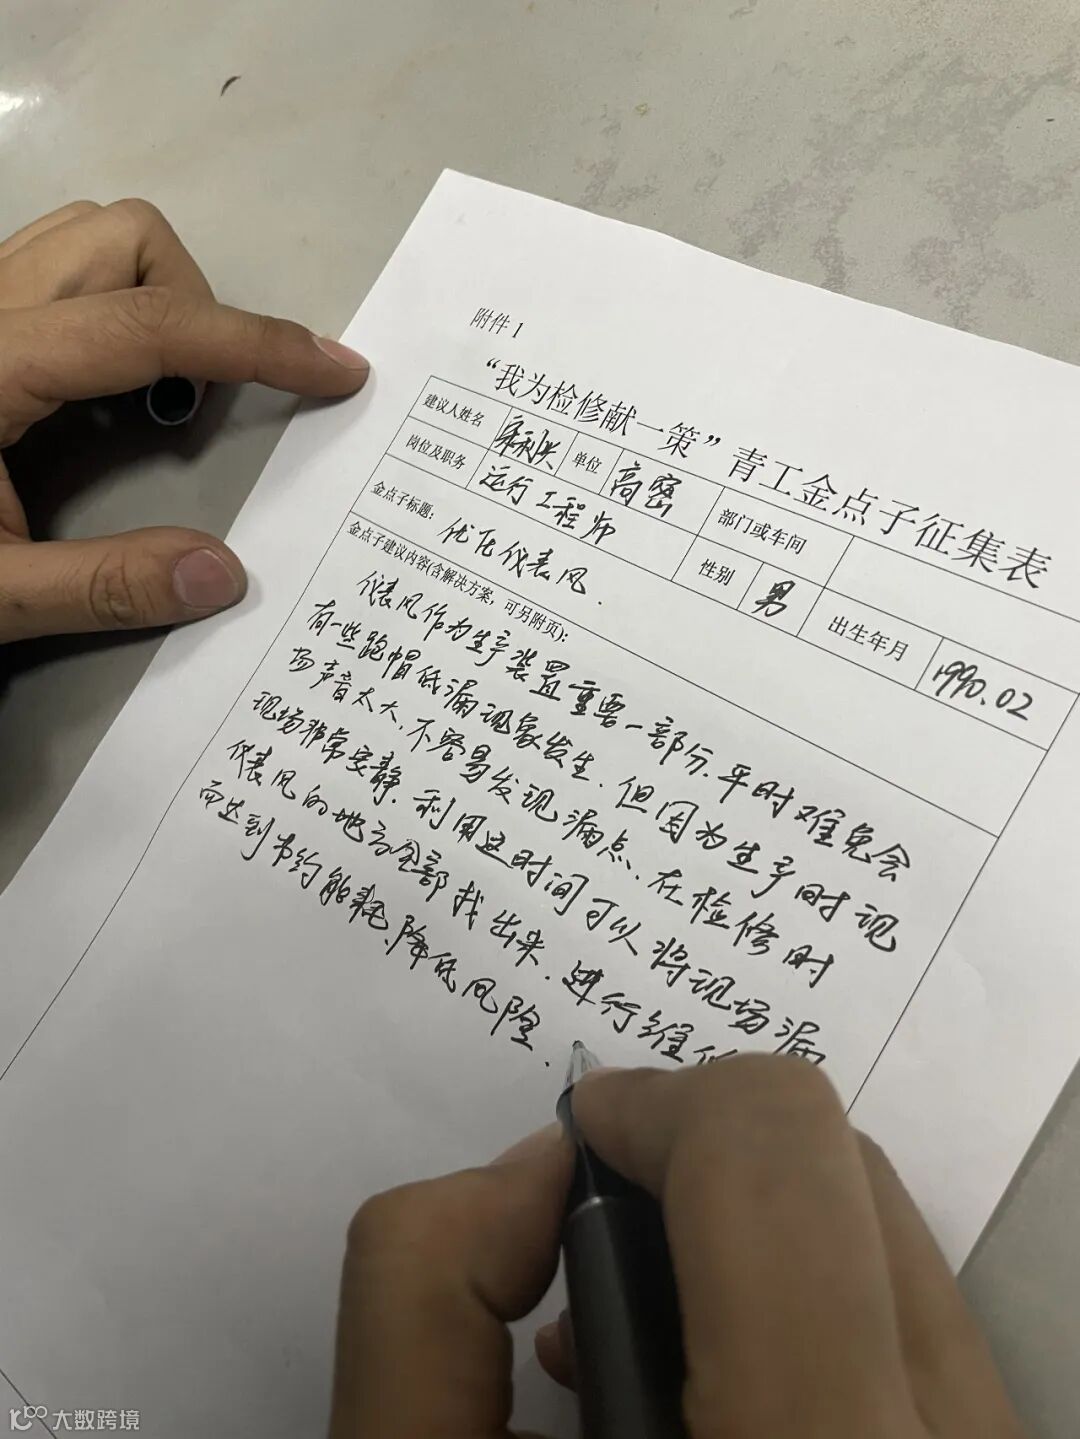 附件 1
“我为检修献一策”青工金点子征集表
建议人姓名 单位 高密 部门或车间
岗位及职务 运行工程师 性别 男 出生年月 1990.02
金点子标题: 优化仪表风.
金点子建议内容(含解决方案,可另附页):
仪表风作为生产装置重要一部分.平时难免会
有一些跑冒低漏现象发生.但因为生产时现
场声音太大.不容易发现漏点.在检修时
现场非常安静.利用这时间可以将现场漏
仪表风的地方全部找出来.进行维
而达到节约能耗.降低风险.
大数跨境